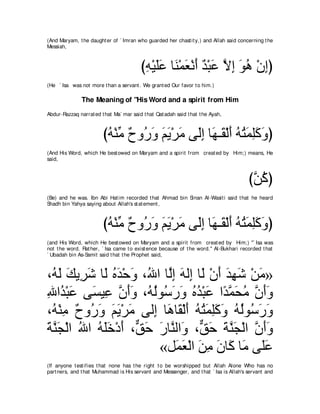 (And Maryam, the daughter of `Imran who guarded her chastity,) and Allah said concerning the
Messiah,
(إِنْ هُوَ إِلاَّ عَبْدٌ أَنْعَمْنَا عَلَيْهِ)
(He `Isa was not more than a servant. We granted Our favor to him.)
The Meaning of "His Word and a spirit from Him
Abdur-Razzaq narrated that Ma`mar said that Qatadah said that the Ayah,
(وَكَلِمَتُهُ أَلْقَـهَا إِلَى مَرْيَمَ وَرُوحٌ مِّنْهُ)
(And His Word, which He bestowed on Maryam and a spirit from created by Him;) means, He
said,
(كُنْ)
(Be) and he was. Ibn Abi Hatim recorded that Ahmad bin Sinan Al-Wasiti said that he heard
Shadh bin Yahya saying about Allah's statement,
(وَكَلِمَتُهُ أَلْقَـهَا إِلَى مَرْيَمَ وَرُوحٌ مِّنْهُ)
(and His Word, which He bestowed on Maryam and a spirit from created by Him;) "`Isa was
not the word. Rather, `Isa came to existence because of the word." Al-Bukhari recorded that
`Ubadah bin As-Samit said that the Prophet said,
«مَنْ شَهِدَ أَنْ لَا إِلَهَ إِلَّا اللهُ، وَحْدَهُ لَا شَرِيكَ لَهُ،
وَأَنَّ مُحَمَّدًا عَبْدُهُ وَرَسُولُهُ، وَأَنَّ عِيسَى عَبْدُاللهِ
وَرَسُولُهُ وَكَلِمَتُهُ أَلْقَاهَا إِلَى مَرْيَمَ وَرُوحٌ مِنْهُ،
وَأَنَّ الْجَنَّةَ حَقٌّ، وَالنَّارَ حَقٌّ، أَدْخَلَهُ اللهُ الْجَنَّةَ
عَلَى مَا كَانَ مِنَ الْعَمَل»
(If anyone testifies that none has the right to be worshipped but Allah Alone Who has no
partners, and that Muhammad is His servant and Messenger, and that `Isa is Allah's servant and